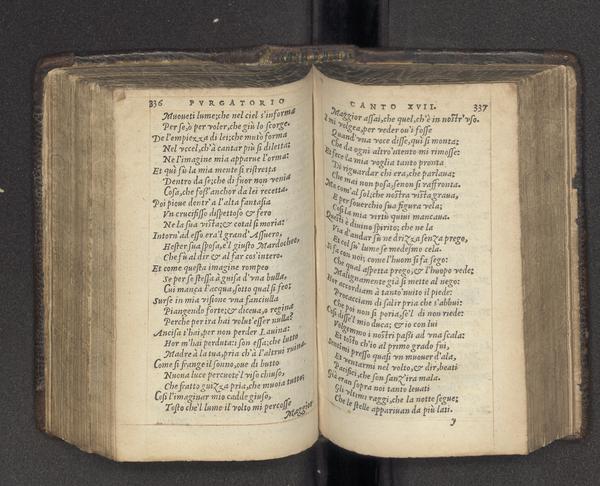 336 PVRGATORIO
Muoueti lume; che nel ciel s'informa
Per se, o per voler, che giù lo scorge.
De l'empiezza di lei; che mutò forma
Nel vccel, ch'à cantar più si diletta:
Ne l'imagine mia apparue l'orma:
Et quì fù la mia mente si ristretta
Dentro da se; che di fuor non venia
Cosa, che foss'anchor da lei recetta.
Poi pioue dentr'a l'alta fantasia
Vn crucifisso dispettoso & fero
Ne la sua vista; & cotal si moria:
Intorn'ad esso era'l grand'Assuero,
Hester sua sposa, e'l giusto Mardocheo,
Che fù al dir & al far cos'intero.
Et come questa imagine rompeo
Se per se stessa à guisa d'vna bulla,
Cui manca l'acqua, sotto qual si feo;
Surse in mia visione vna fanciulla
Piangendo forte; & diceua, o regina
Perche per ira hai volut'esser nulla?
Ancisa t'hai, per non perder Lauina:
Hor m'hai perduta: i son essa; che lutto
Madre à la tua, pria ch'à l'altrui ruina.
Come si frange il sonno, oue di butto
Nuoua luce percuote'l viso chiuso,
Che fratto guizza pria, che muoia tutto;
Così l'imaginar mio cadde giuso,
Tosto che'l lume il volto mi percosse
Maggior
CANTO XVII. 337
Maggior assai, che quel, ch'è in nostr'vso.
I mi volgea, per veder ou'i fosse
Quand'vna voce disse, quì si monta;
Che da ogni altro'ntento mi rimosse:
Et fece la mia voglia tanto pronta
Di riguardar chi era, che parlaua;
Che mai non posa, se non si raffronta.
Ma com'al sol; che nostra vista graua,
E per souerchio sua figura vela;
Così la mia virtù quiui mancaua.
Questi è diuino spirito; che ne la
Via d'andar sù ne drizza senza prego,
Et col su' lume se medesmo cela.
Si fa con noi; come l'huom si fa sego:
Che qual aspetta prego, & l'huopo vede;
Malignamente già si mette al nego:
Hor accordiam à tanto'nuito il piede:
Procacciam di salir pria che s'abbui:
Che poi non si poria, se'l dì non riede:
Così disse'l mio duca; & io con lui
Volgemmo i nostri passi ad vna scala:
Et tosto ch'io al primo grado fui,
Sentimi presso quasi vn muouer d'ala,
Et ventarmi nel volto, & dir, beati
Pacifici, che son sanz'ira mala.
Già eran sopra noi tanto leuati
Gli vltimi raggi, che la notte segue;
Che le stelle appariuan da più lati.
y